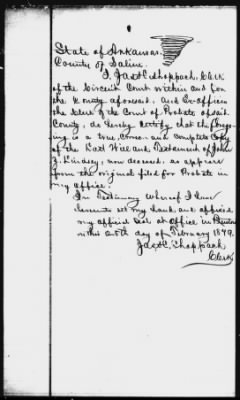 State of Arkansas
County of Saline
I, Jas. C. Shoppach, Clerk
of the Circuit Court within and for
the County aforesaid, and Ex-officio
the Clerk of the Court of Probate of said
County, do hereby certify that the foregoing
is a true, correct and complete copy
of the Last Will and Testament of John
Y. Lindsey, now deceased, as appears
from the original filed for Probate in
my office.
In Testimony whereof I have
hereunto set my hand and affixed
my official seal at office in Benton
this day of February 1879.
Jas. C. Shoppach
Clerk